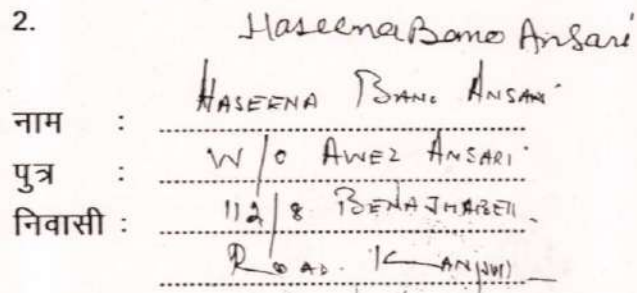 2. Haseena Bano Ansari
नाम : HASEENA BANO ANSARI
पुत्र : W/O AWEZ ANSARI
निवासी : 112/8 BENAJHABER
ROAD. KANPUR